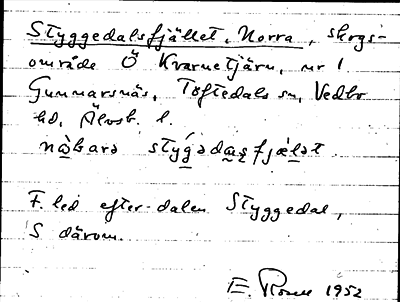 Styggedalsfjället, Norra, skogs-
område Ö Kvarnetjärn, nr 1
Gunnarsnäs, Töftedals sn, Vedbo
hd, Älvsb. l.
nò̱barə stýg̱əda̱s̱fjæ̱ḻət
F. led efter dalen Styggedal,
S därom.
E. 1952